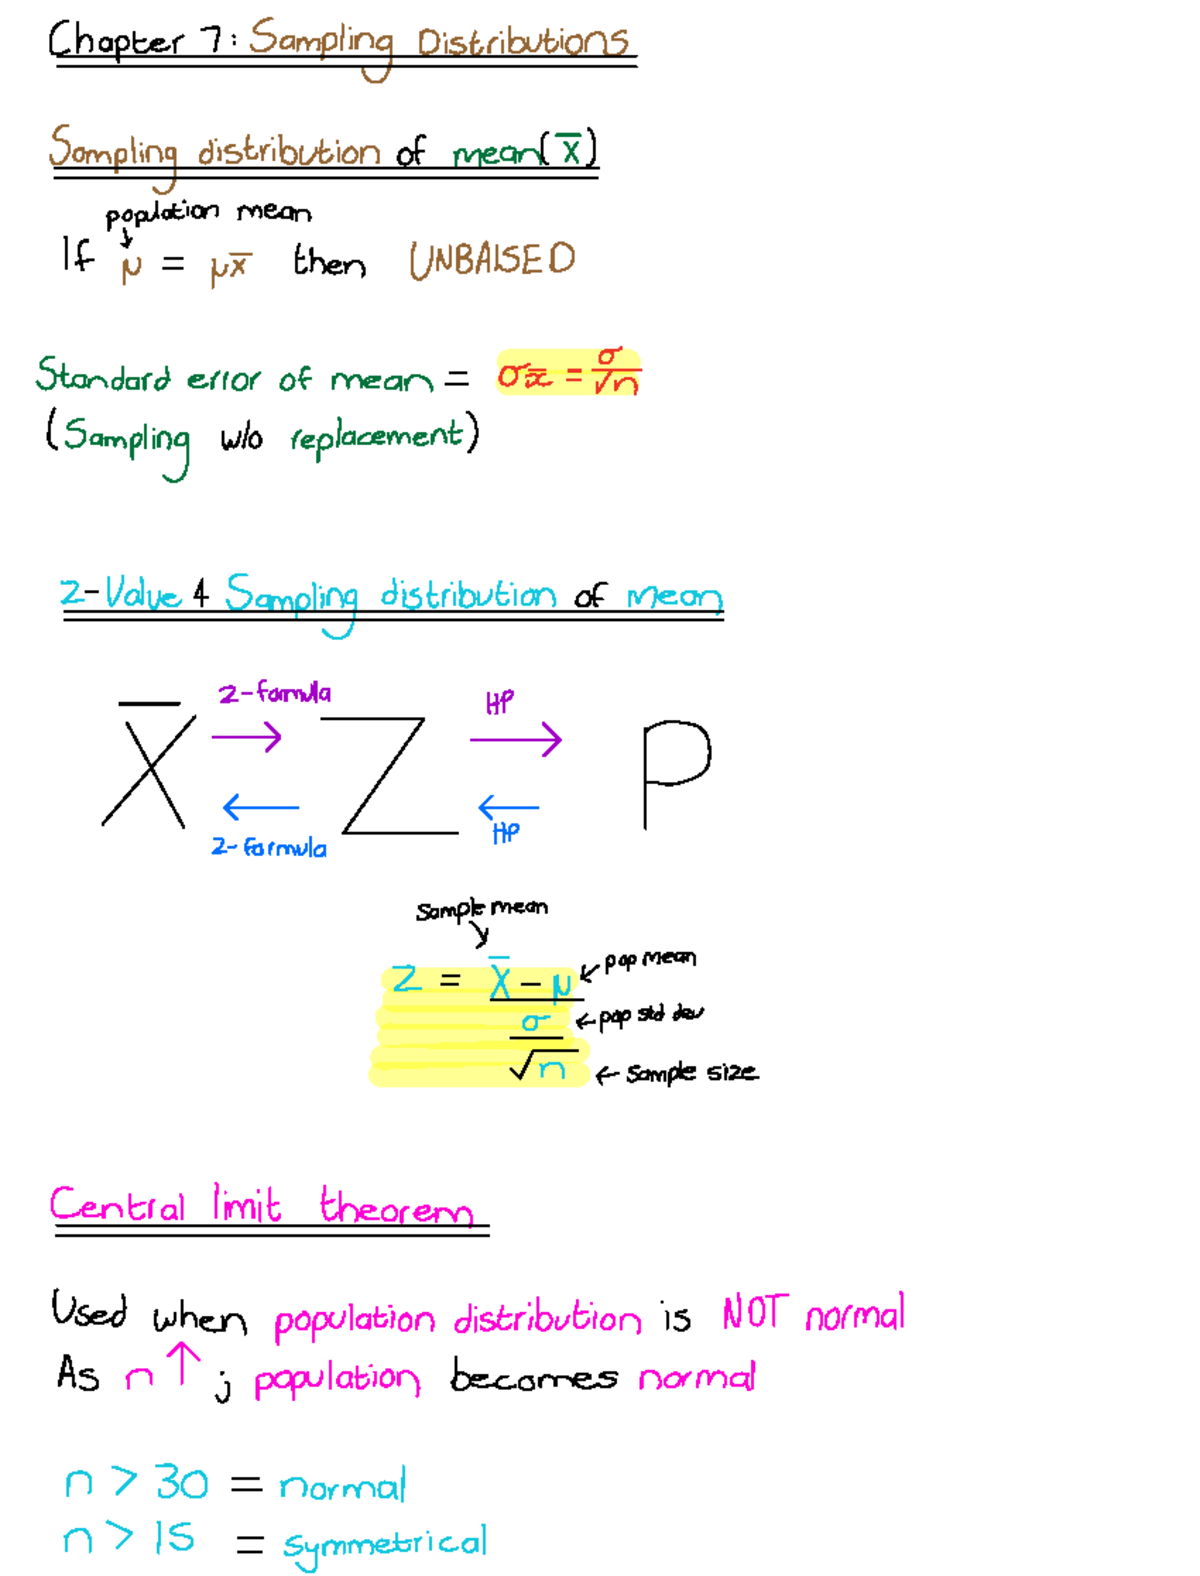 Chapter 7: Sampling Distributions
Sampling distribution of mean (x̄)
population mean
↓
If μ = μx̄ then UNBAISED
Standard error of mean = σx̄ = σ/√n
(Sampling w/o replacement)
Z-Value & Sampling distribution of mean
Z-formula HP
X̄ → Z → P
← ←
Z-formula HP
Sample mean
↘
Z = X̄ - μ ← pop mean
σ ← pop std dev
√n ← Sample size
Central limit theorem
Used when population distribution is NOT normal
As n ↑ ; population becomes normal
n > 30 = normal
n > 15 = symmetrical